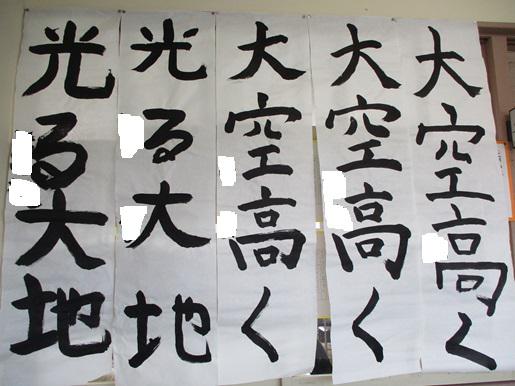 大空高く
大空高く
大空高く
光る大地
光る大地